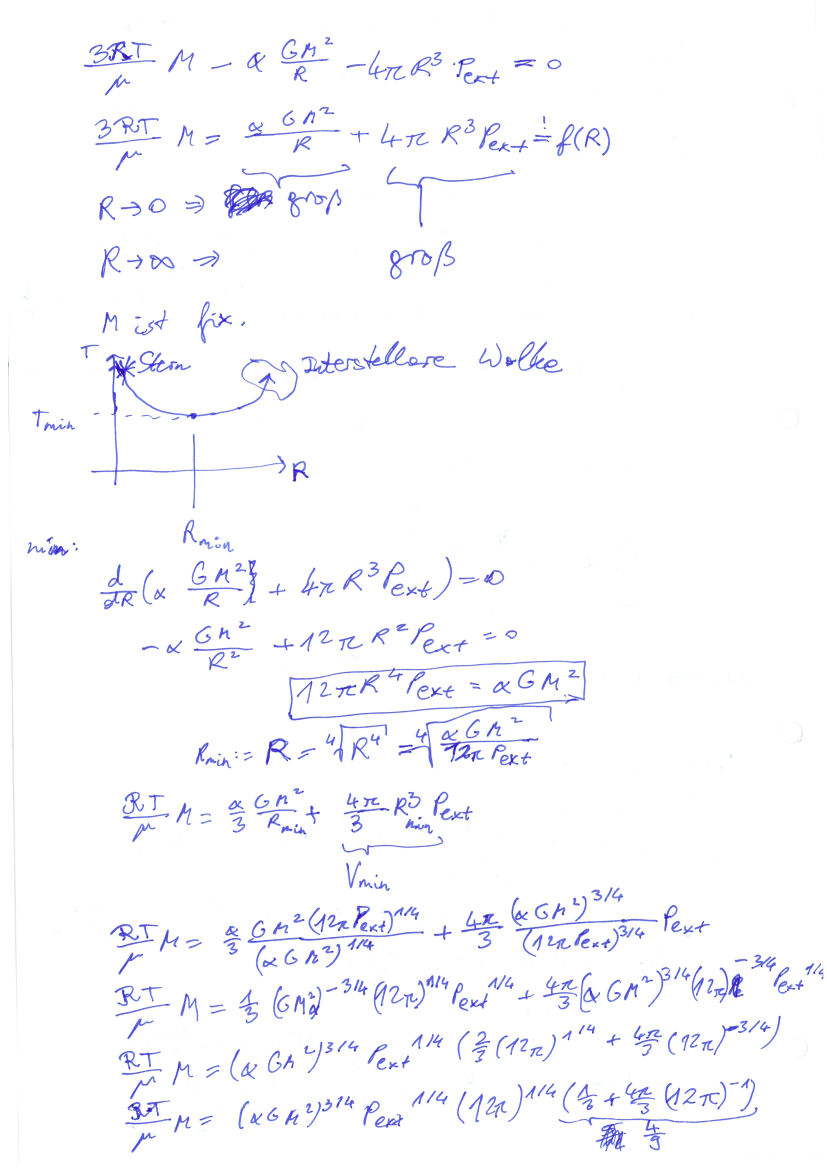 3ℛT/μ M − α GM²/R − 4πR³·P_ext = 0
3ℛT/μ M = α GM²/R + 4π R³P_ext ≟ f(R)
R→0 ⇒ groß
R→∞ ⇒ groß
M ist fix.
T Stern Interstellare Wolke
T_min
R
R_min
min:
d/dR (α GM²/R + 4πR³P_ext) = 0
−α GM²/R² + 12πR²P_ext = 0
12πR⁴P_ext = αGM²
R_min := R = ⁴√R⁴ = ⁴√(αGM²/12πP_ext)
ℛT/μ M = α/3 GM²/R_min + 4π/3 R³_min P_ext
V_min
ℛT/μ M = α/3 GM²(12πP_ext)^1/4/(αGM²)^1/4 + 4π/3 (αGM²)^3/4/(12πP_ext)^3/4 P_ext
ℛT/μ M = 1/3 (GM²α)^−3/4 (12π)^1/4 P_ext^1/4 + 4π/3 (αGM²)^3/4 (12π)^−3/4 P_ext^1/4
ℛT/μ M = (αGM²)^3/4 P_ext^1/4 (2/3 (12π)^1/4 + 4π/3 (12π)^−3/4)
ℛT/μ M = (αGM²)^3/4 P_ext^1/4 (12π)^1/4 (1/3 + 4π/3 (12π)^−1)
4/9